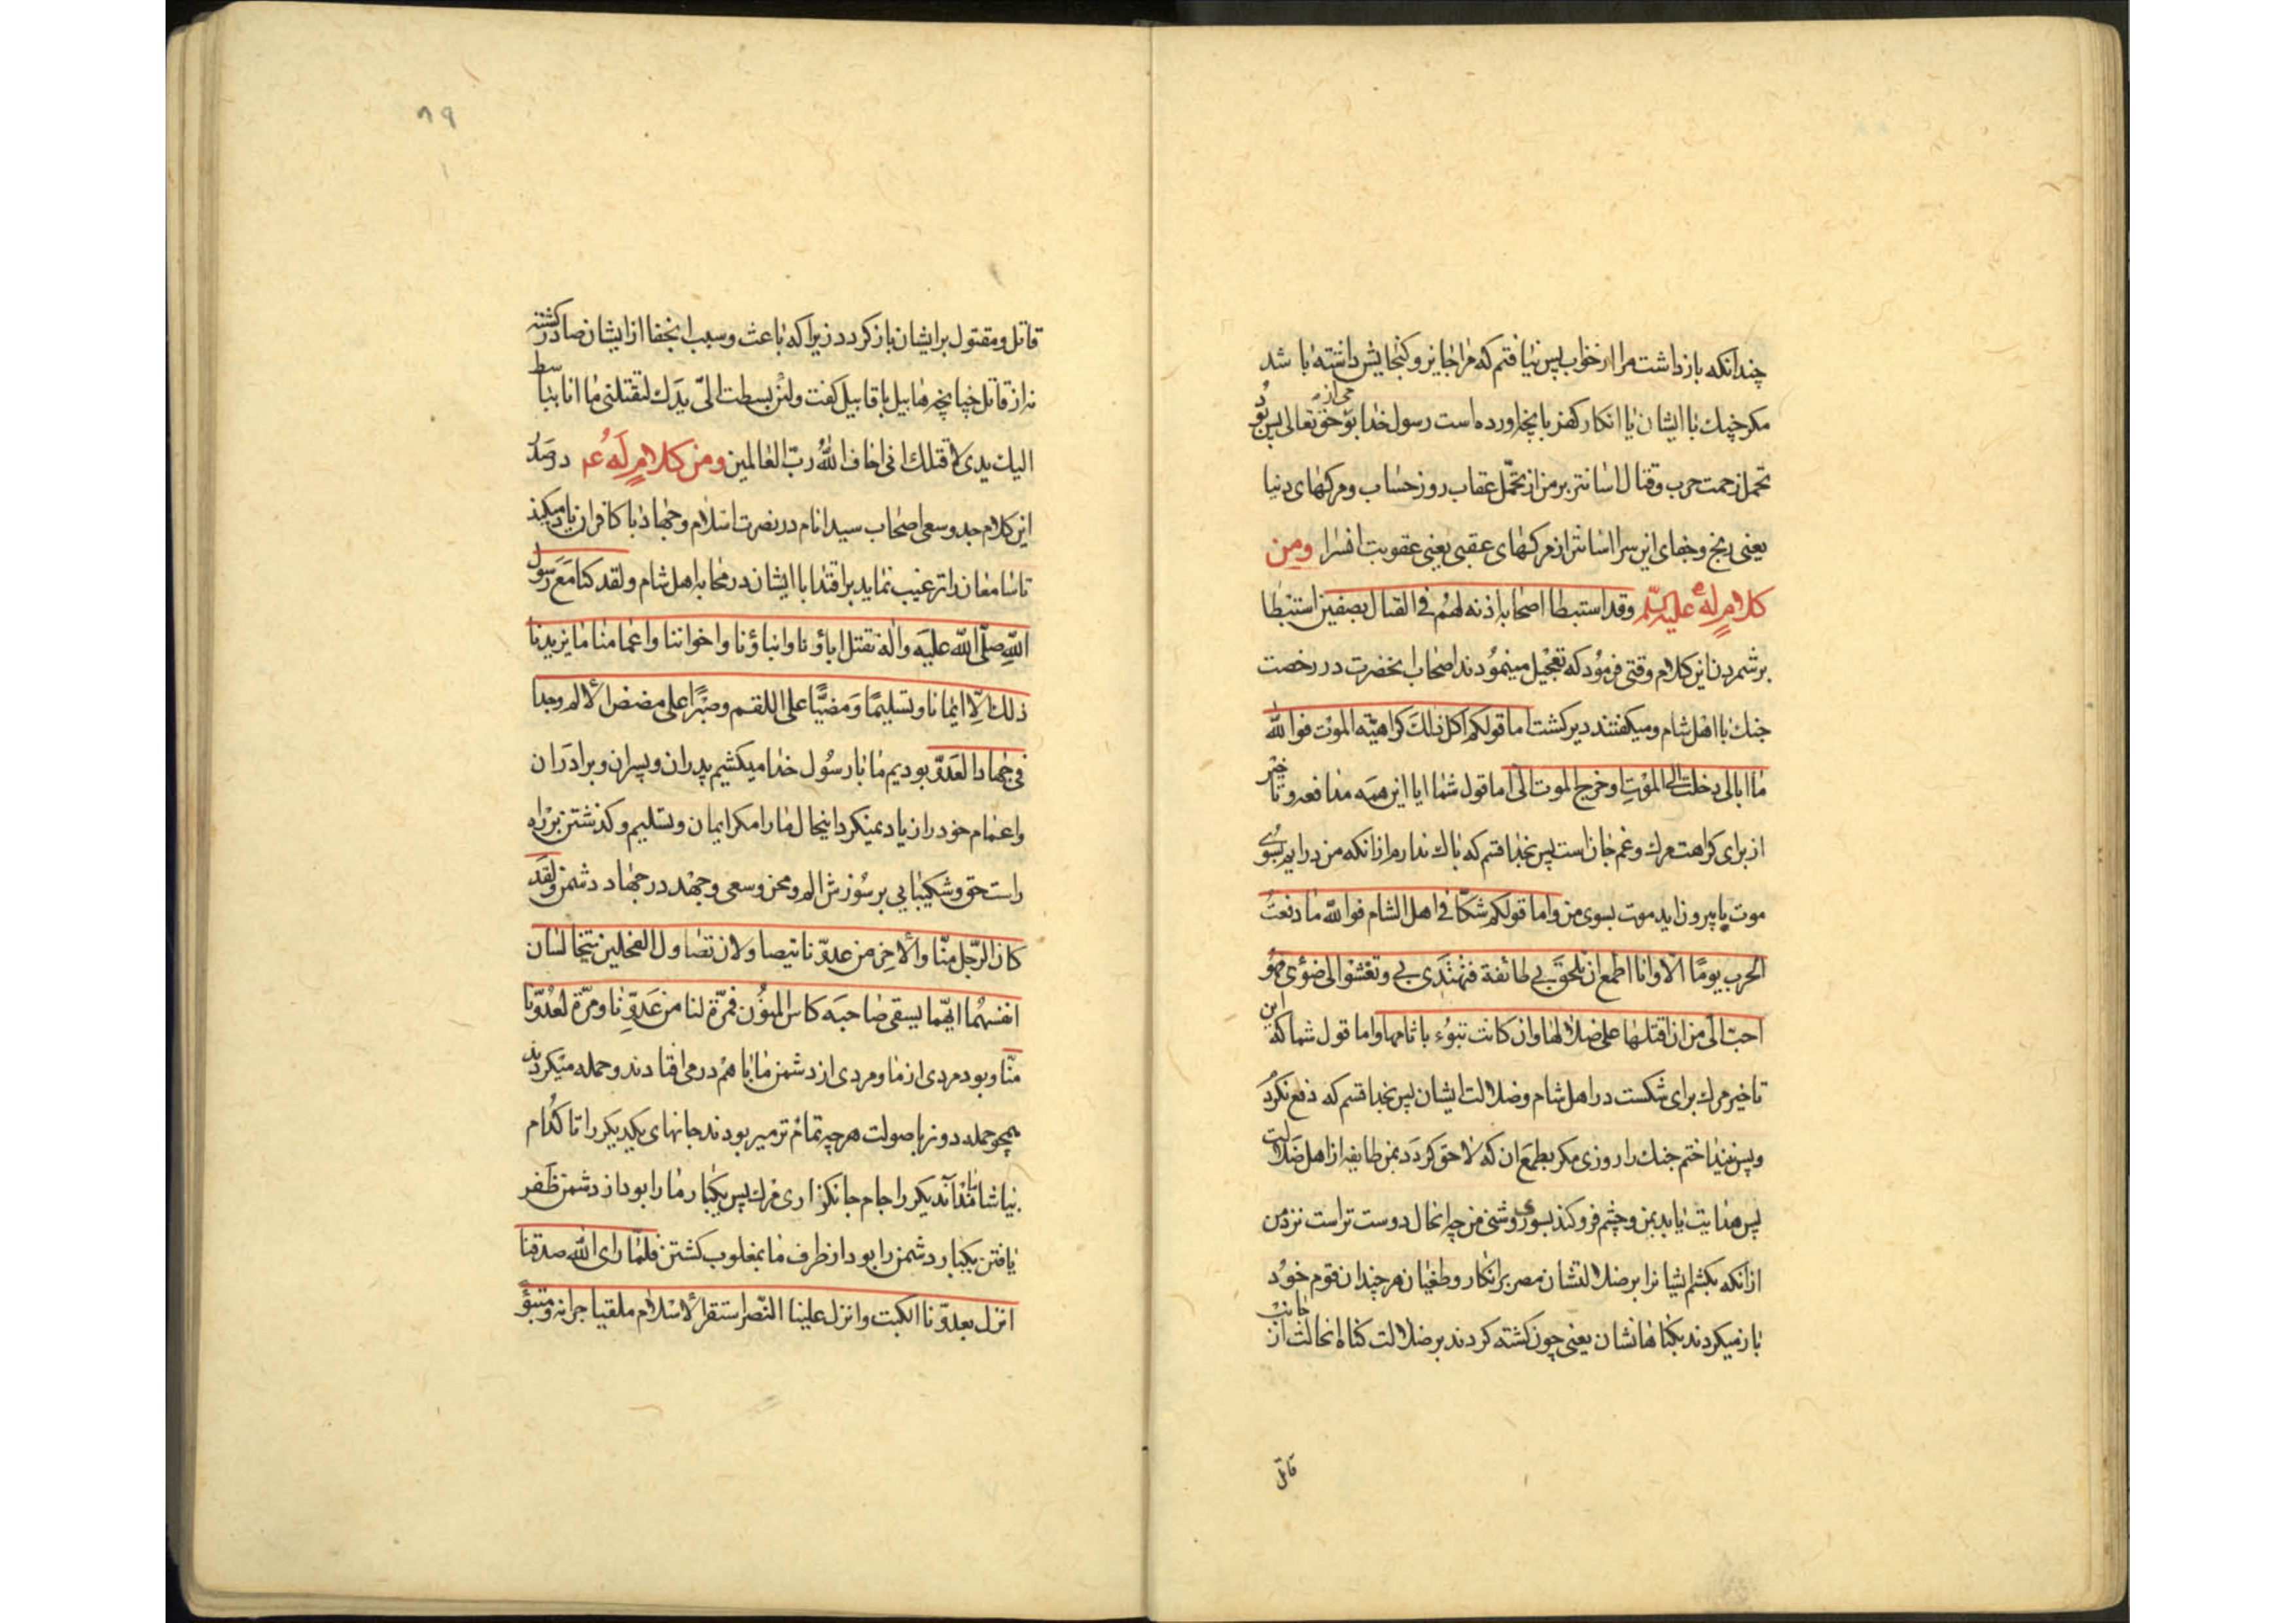 چندانکه بازداشت مرا از خواب پس نیافتم که مرا جایز و کنجایش داشته باشد
مکر جنك با ایشان یا انکار کفر بانچه اورده است رسول خدا بو حق تعالی پس بود
تحمل زحمت حرب و قتال اسانتر بر من از تحمّل عقاب روز حساب و مرکهای دنیا
یعنی رنج و جفای این سرا اسانتر از مرکهای عقبی یعنی عقوبت انسرا ومن
کلامٍ لهُ علیه السّلم وقد استبطا اصحابه اذنه لهم فی القتال بصفین استبطا
بر شمردن این کلام وقتی فرمود که تعجیل مینمودند اصحاب انحضرت در رخصت
جنك با اهل شام و میکفتند دیر کشت اما قولکم اکل ذلك کراهیّه الموت فوالله
ما ابالی دخلت الی الموتِ او خرج الموت الیّ اما قول شما ایا این همه مدافعه و تاخیر
از برای کراهت مرك و غم جان است پس بخدا قسم که باك ندارم از انکه من درایم بسوی
موت یا بیرون اید موت بسوی من واما قولکم شکّا فی اهل الشام فوالله ما دفعتُ
الحرب یومًا الا وانا اطمع ان تلحق بی طائفة فتهتدی بی وتعشو الی ضوئی فهو
احبّ الیّ من ان اقتلها علی ضلالها وان کانت تبوء باثامها واما قول شما که این
تاخیر مرك برای شکست در اهل شام و ضلالت ایشان پس بخدا قسم که دفع نکرد
و پس نینداختم جنك را روزی مکر بطمع ان که لاحق کردد بمن طایفه از اهل ضلالت
پس هدایت یابد بمن و چشم فرو کند بسوی روشنی من چه انحال دوست تر است نزد من
از انکه بکشم ایشانرا بر ضلالتشان مصر بر انکار و طغیان هر چند ان قوم خود
باز میکردند بکناهانشان یعنی چون کشته کردند بر ضلالت کناه انحالت از جانب
قاتل
۸۹
قاتل و مقتول بر ایشان باز کردد زیرا که باعث و سبب انجفا از ایشان صادر کشته
نه از قاتل چنانچه هابیل با قابیل کفت ولئن بسطت الیّ یدك لتقتلنی ما انا بباسط
الیك یدی لاقتلك انی اخاف اللهُ ربّ العالمین ومن کلامٍ لَهُ عم در صدد
این کلام جد و سعی اصحاب سید انام در نصرت اسلام و جهاد با کافران یاد میکند
تا سامعان را ترغیب نماید بر اقتدا با ایشان در محاربه اهل شام ولقد کنا مَعَ رسول
اللهِ صلّی الله علیه واله نقتل اباؤنا وابناؤنا واخواننا واعمامنا ما یزیدنا
ذلك الّا ایمانا وتسلیمًا وَمضیًّا علی اللقم وصبرًا علی مضض الالم وجدا
فی جهاد العدوّ بودیم ما با رسُول خدا میکشیم پدران و پسران و برادَران
و اعمام خود را زیاد نمیکرد اینحال ما را مکر ایمان و تسلیم و کذشتن بر راه
راست حق و شکیبایی بر سُوزش الم و محن و سعی و جهد در جهاد دشمن ولقَد
کان الرّجل منّا والاخر من عدوّنا یتصاولان تصاول الفحلین یتخالسان
انفسهُما ایّهما یسقی صاحبَه کاس المنُون فمرّة لنا من عَدوِّنا ومرّة لعدُوّنا
منّا و بود مردی از ما و مردی از دشمن ما با هم در می افتادند و حمله میکردند
همچو حمله دو نر با صولت هر چه تمام تر میربودند جانهای یکدیکر را تا کدام
بیاشاماند آندیکر را جام جانکزاری مرك پس یکبار ما را بود از دشمن ظفر
یافتن یکبار دشمن را بود از طرف ما بمغلوب کشتن فلمّا رای الله صدقنا
انزل بعدوّنا الکبت وانزل علینا النّصر استقر الاسلام ملقیا جرانه ومتبوّ